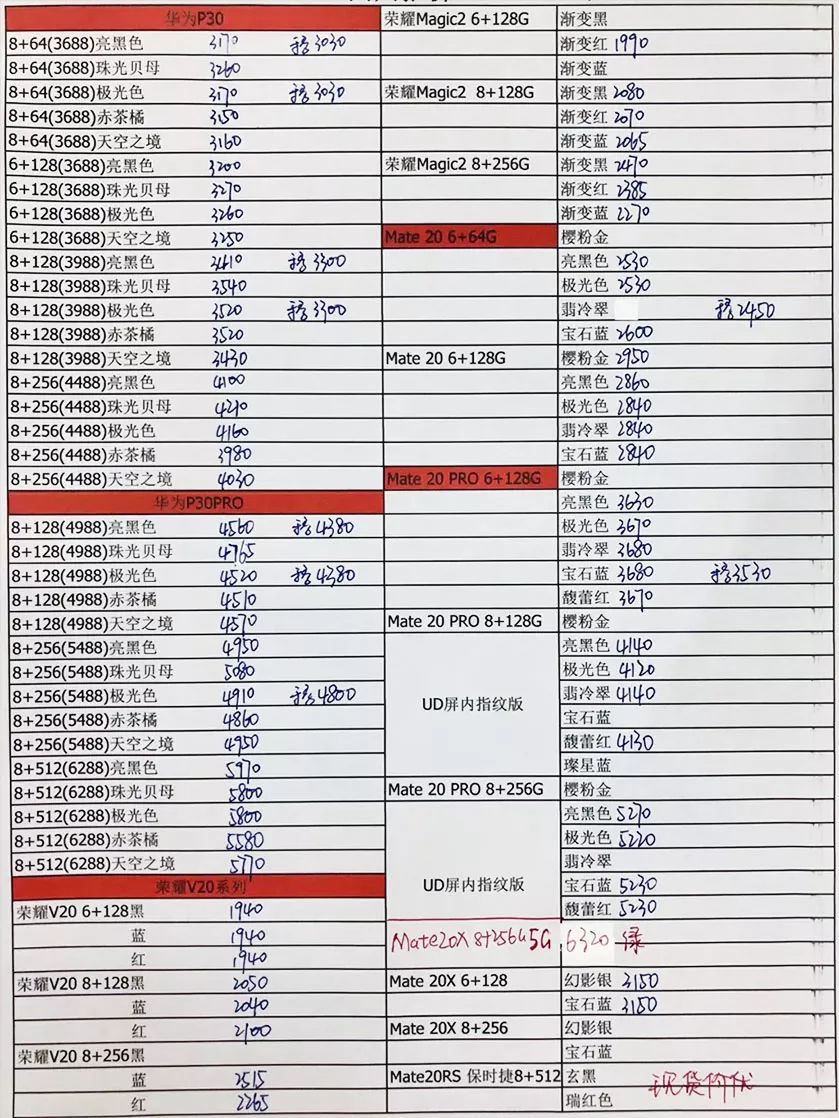 华为P30
8+64(3688)亮黑色 3170 移3030
8+64(3688)珠光贝母 3260
8+64(3688)极光色 3170 移3030
8+64(3688)赤茶橘 3150
8+64(3688)天空之境 3160
6+128(3688)亮黑色 3200
6+128(3688)珠光贝母 3270
6+128(3688)极光色 3260
6+128(3688)天空之境 3250
8+128(3988)亮黑色 3410 移3300
8+128(3988)珠光贝母 3540
8+128(3988)极光色 3520 移3300
8+128(3988)赤茶橘 3520
8+128(3988)天空之境 3430
8+256(4488)亮黑色 4100
8+256(4488)珠光贝母 4210
8+256(4488)极光色 4160
8+256(4488)赤茶橘 3980
8+256(4488)天空之境 4030
华为P30PRO
8+128(4988)亮黑色 4560 移4380
8+128(4988)珠光贝母 4765
8+128(4988)极光色 4520 移4380
8+128(4988)赤茶橘 4510
8+128(4988)天空之境 4570
8+256(5488)亮黑色 4950
8+256(5488)珠光贝母 5080
8+256(5488)极光色 4910 移4800
8+256(5488)赤茶橘 4860
8+256(5488)天空之境 4950
8+512(6288)亮黑色 5970
8+512(6288)珠光贝母 5800
8+512(6288)极光色 5800
8+512(6288)赤茶橘 5580
8+512(6288)天空之境 5770
荣耀V20系列
荣耀V20 6+128黑 1940
蓝 1940
红 1940
荣耀V20 8+128黑 2050
蓝 2040
红 2100
荣耀V20 8+256黑
蓝 2515
红 2265
荣耀Magic2 6+128G 渐变黑
渐变红 1990
渐变蓝
荣耀Magic2 8+128G 渐变黑 2080
渐变红 2070
渐变蓝 2065
荣耀Magic2 8+256G 渐变黑 2470
渐变红 2385
渐变蓝 2270
Mate 20 6+64G 樱粉金
亮黑色 2530
极光色 2530
翡冷翠 移2450
宝石蓝 2600
Mate 20 6+128G 樱粉金 2950
亮黑色 2860
极光色 2840
翡冷翠 2840
宝石蓝 2840
Mate 20 PRO 6+128G 樱粉金
亮黑色 3630
极光色 3670
翡冷翠 3680
宝石蓝 3680 移3530
馥蕾红 3670
Mate 20 PRO 8+128G 樱粉金
亮黑色 4140
极光色 4120
UD屏内指纹版 翡冷翠 4140
宝石蓝
馥蕾红 4130
璨星蓝
Mate 20 PRO 8+256G 樱粉金
亮黑色 5270
极光色 5220
翡冷翠
UD屏内指纹版 宝石蓝 5230
馥蕾红 5230
Mate20X 8+256G 5G 6320 绿
Mate 20X 6+128 幻影银 3150
宝石蓝 3150
Mate 20X 8+256 幻影银
宝石蓝
Mate20RS 保时捷8+512 玄黑 现货价优
瑞红色